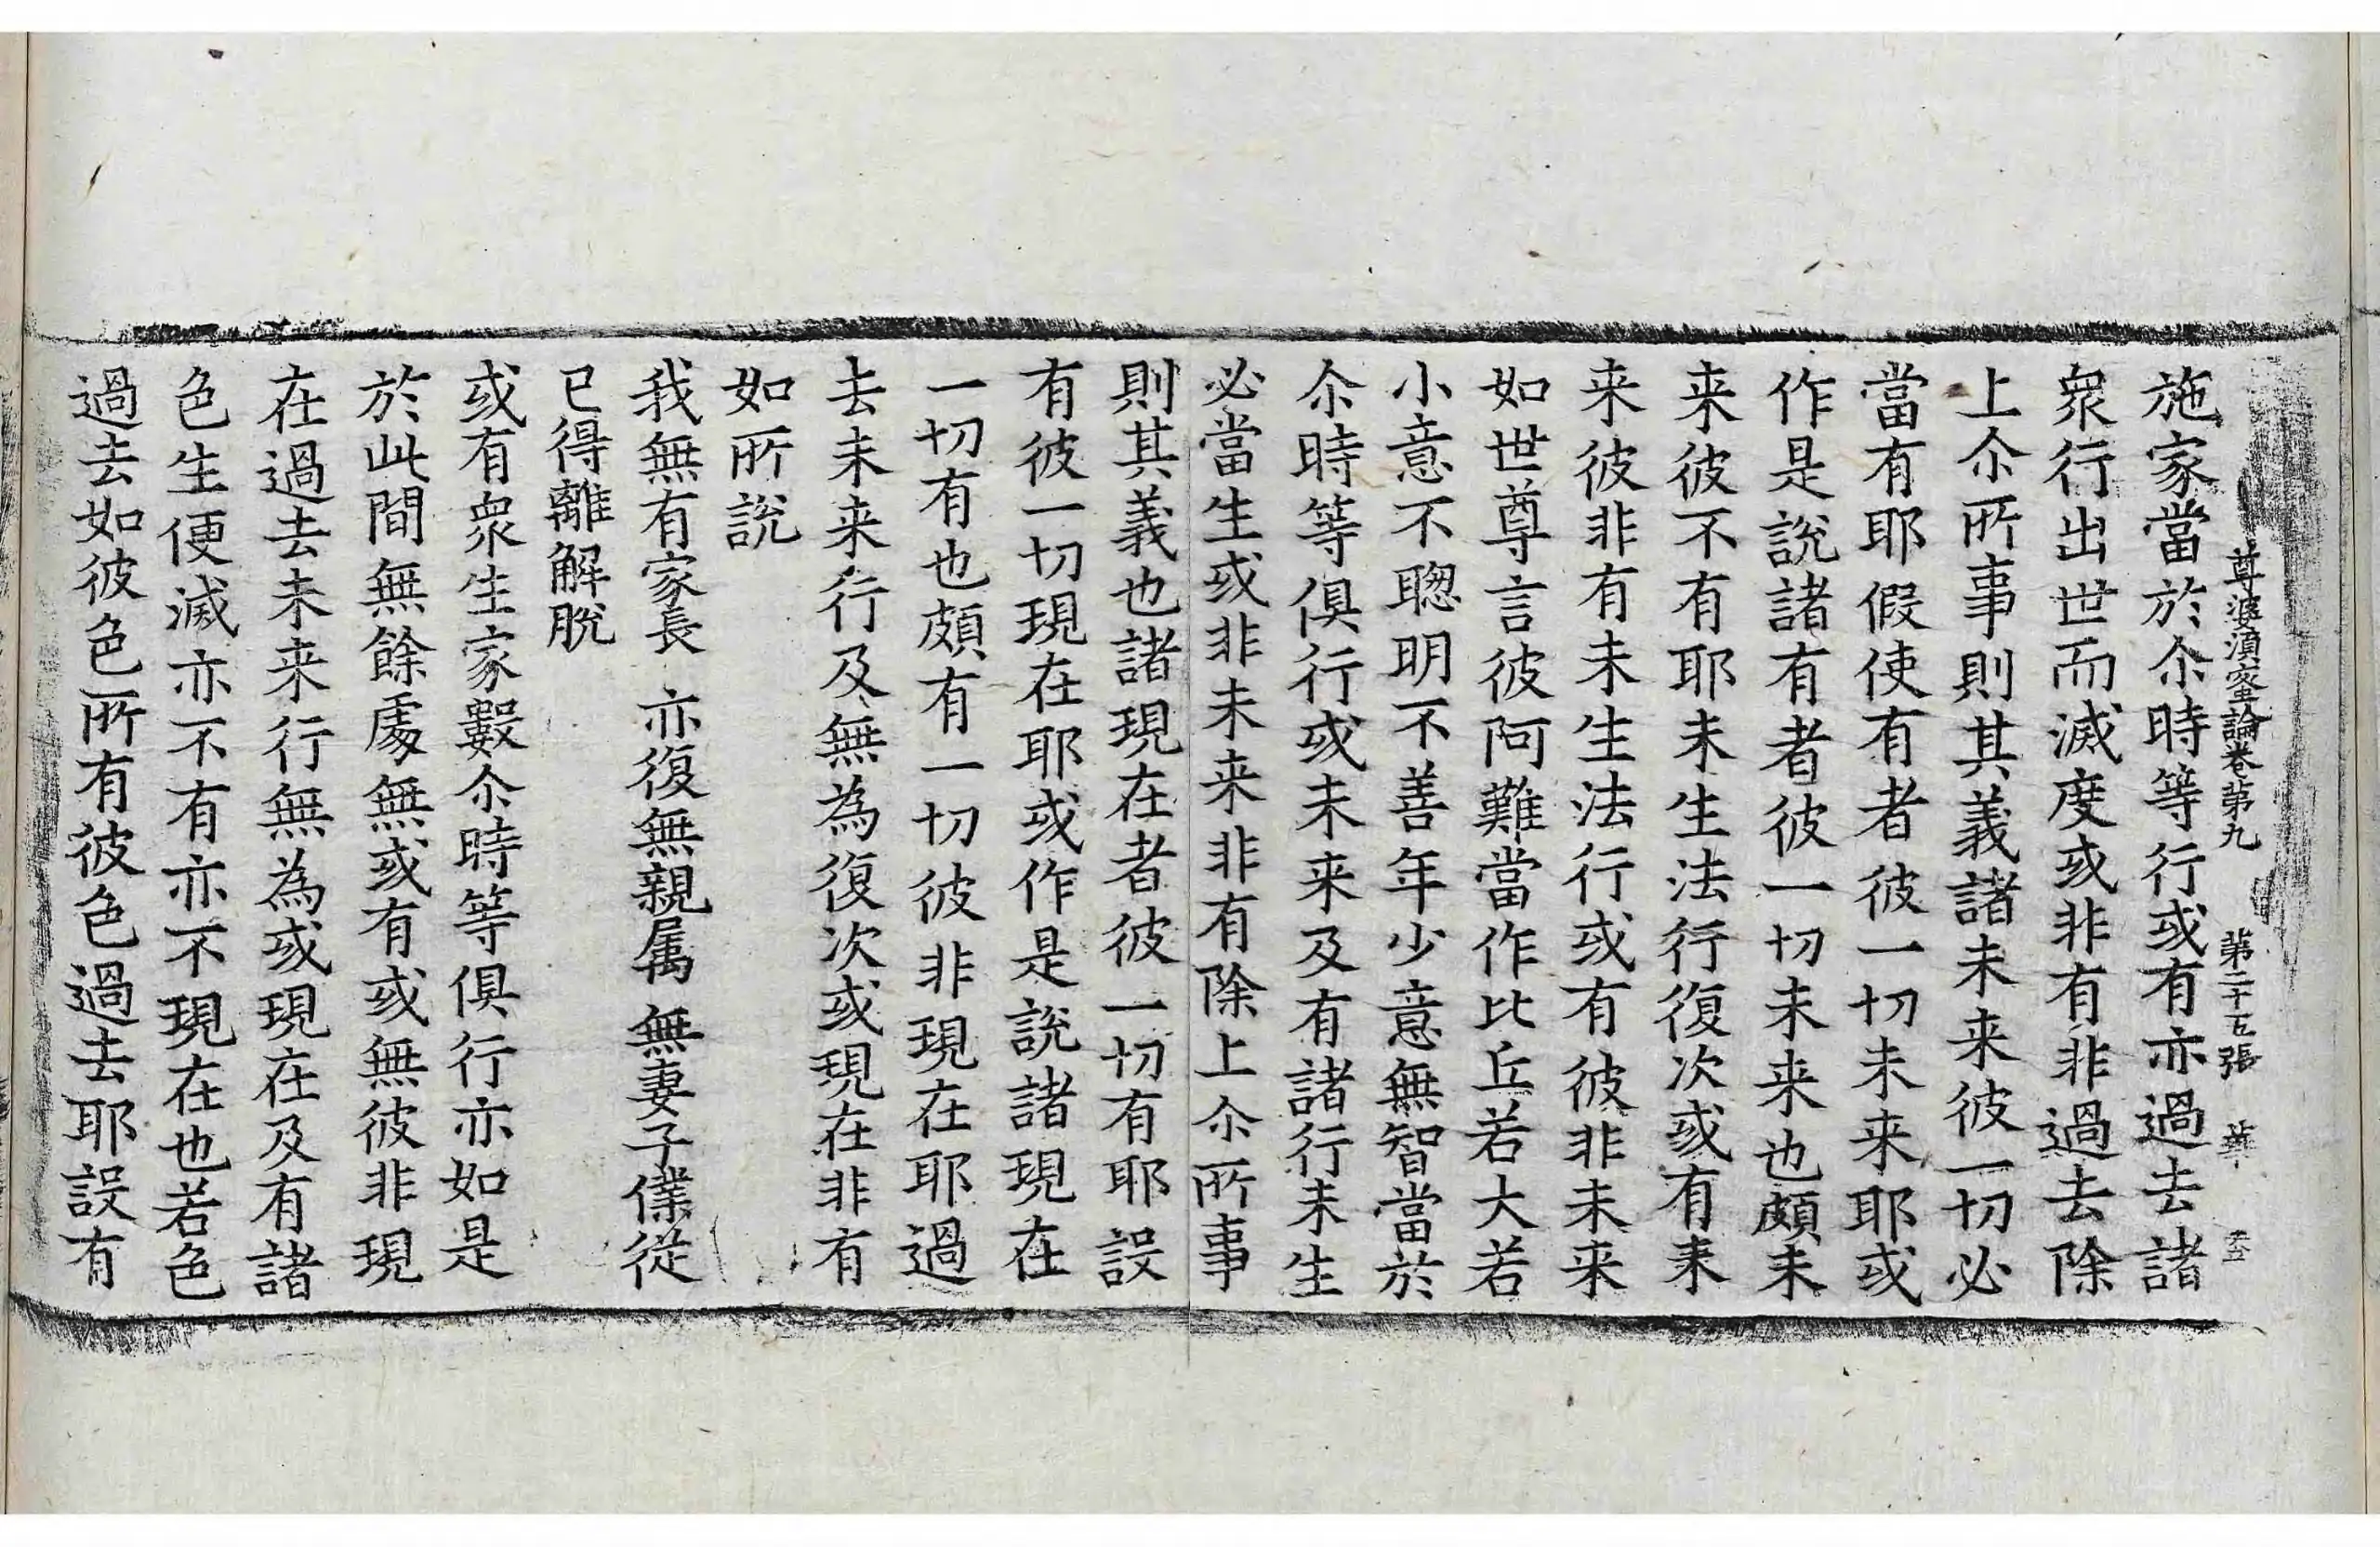 尊婆湏蜜論卷第九 第二十五張 華
施家當於尒時等行或有亦過去諸
衆行出世而滅度或非有非過去除
上尒所事則其義諸未来彼一切必
當有耶假使有者彼一切未来耶或
作是說諸有者彼一切未来也頗未
来彼不有耶未生法行復次或有未
来彼非有未生法行或有彼非未来
如世尊言彼阿難當作比丘若大若
小意不聰明不善年少意無智當於
尒時等俱行或未来及有諸行未生
必當生或非未来非有除上尒所事
則其義也諸現在者彼一切有耶設
有彼一切現在耶或作是說諸現在
一切有也頗有一切彼非現在耶過
去未来行及無為復次或現在非有
如所說
我無有家長 亦復無親属 無妻子僕從
已得離解脫
或有衆生家數尒時等俱行亦如是
於此間無餘處無或有或無彼非現
在過去未来行無為或現在及有諸
色生便滅亦不有亦不現在也若色
過去如彼色所有彼色過去耶設有